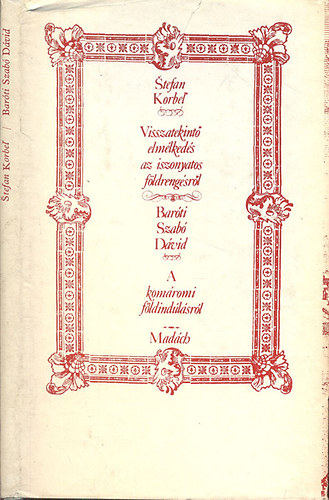 Štefan Korbeľ / Baróti Szabó Dávid
Štefan
Korbeľ
Visszatekintő
elmélkedés
az iszonyatos
földrengésről
Baróti
Szabó
Dávid
A
komáromi
földindúlásról
Madách